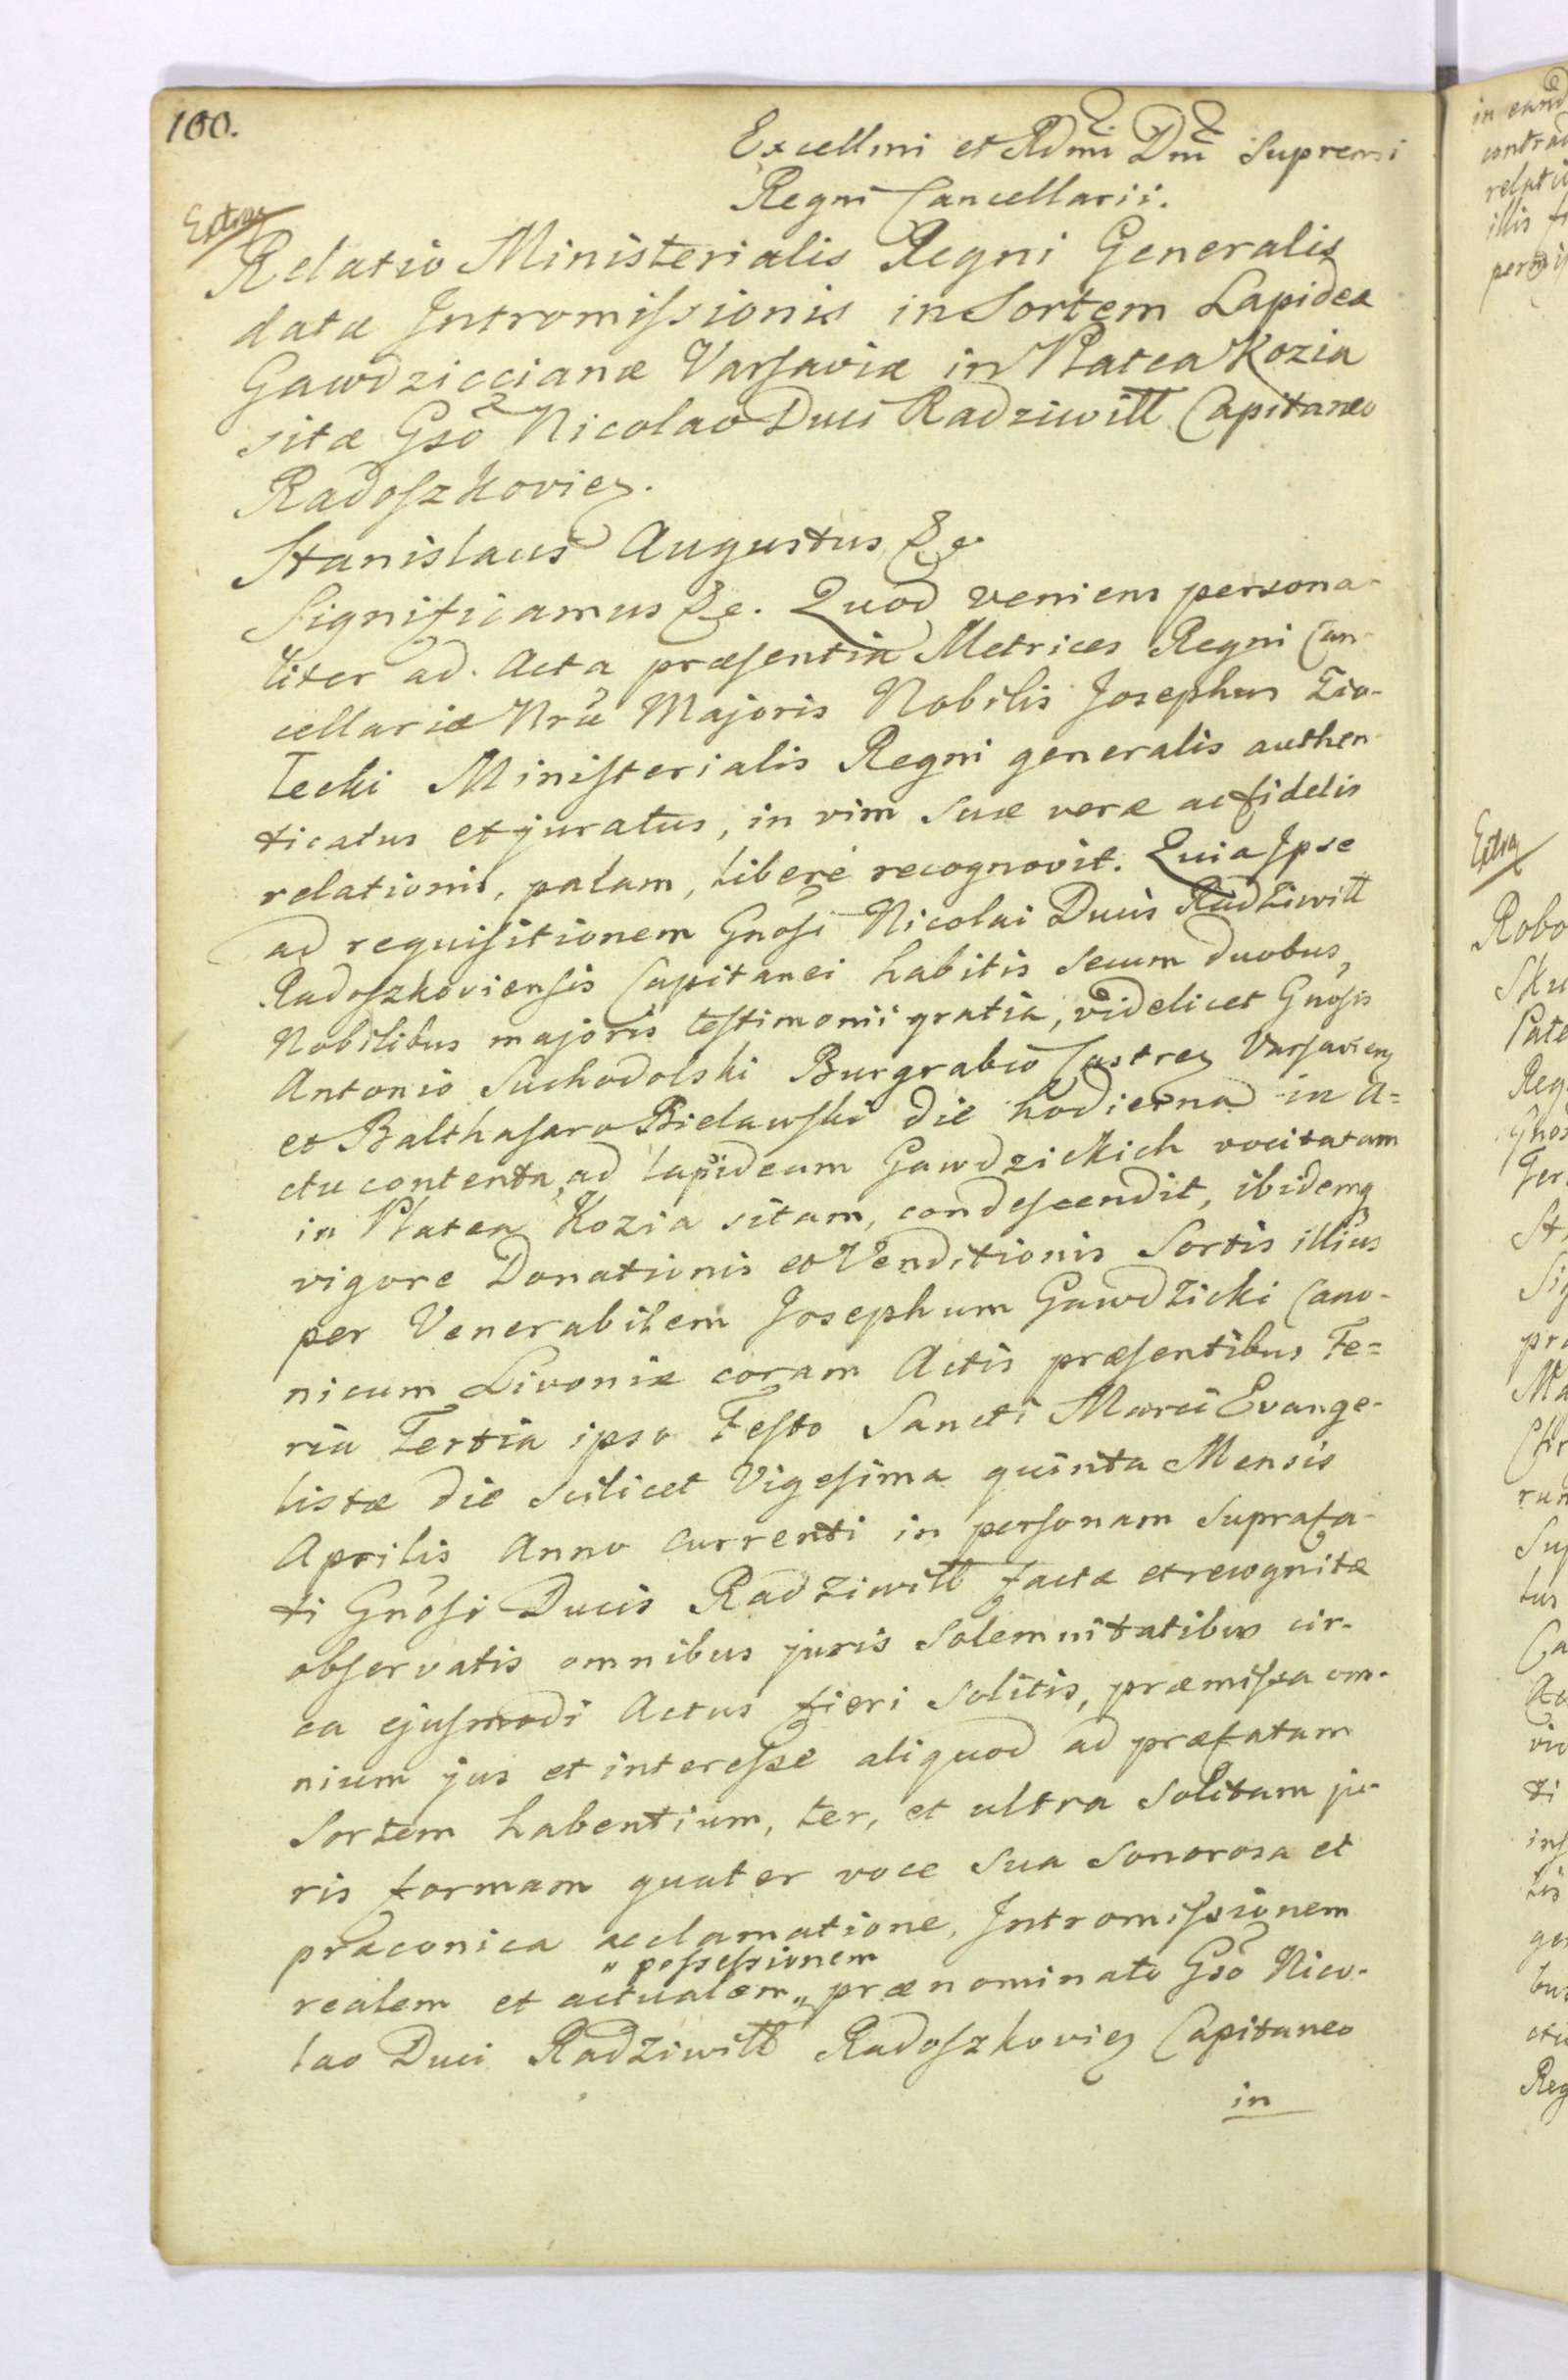 100.
Excellmi et Rdmi Dni Supremi
Regni Cancellarii.
Extra
Relatio Ministerialis Regni Generalis
datæ Intromissionis in Sortem Lapideæ
Gawdziccianæ Varsaviæ in Platea Kozia
sitæ Gsō Nicolao Duci Radziwiłł Capitaneo
Radoszkovien.
Stanislaus Augustus &c.
Significamus &c. Quod veniens persona-
liter ad Acta præsentia Metrices Regni Can-
cellariæ Nræ Majoris Nobilis Josephus
Ministerialis Regni generalis authen-
ticatus et juratus, in vim suæ veræ ac fidelis
relationis, palam, liberè recognovit. Quia Ipse
ad requisitionem Gnōsi Nicolai Ducis Radziwiłł
Radoszkoviensis Capitanei habitis secum duobus
Nobilibus majoris testimonii gratia, videlicet Gnosis
Antonio Suchodolski Burgrabio Castren Varsavien
et Balthasaro Bielawski die hodierna in A=
ctu contenta, ad lapideam Gawdzickich vocitatam
in Platea Kozia sitam, condescendit, ibidemq
vigore Donationis et Venditionis Sortis illius
per Venerabilem Josephum Gawdzicki Cano-
nicum Livoniæ coram Actis præsentibus Fe=
ria Tertia ipso Festo Sancti Marci Evange-
listæ die scilicet Vigesima quinta Mensis
Aprilis Anno currenti in personam suprafa-
ti Gnōsi Ducis Radziwiłł factæ et recognitæ
observatis omnibus juris Solemnitatibus cir-
ca ejusmodi Actus fieri solitis, præmissa om-
nium jus et interesse aliquod ad præfatam
Sortem habentium, ter, et ultra solitam ju-
ris formam quater voce sua sonorosa et
præconica acclamatione, Intromissionem
" possessionem
realem et actualem " prænominato Gsō Nico-
lao Duci Radziwiłł Radoszkovien Capitaneo
in
in eand
relatio
illis
Extra
Robo
Sku
Pate
Reg
Gnos
St
Sig
Ma
run
Sup
tus
Ca
ti
Reg